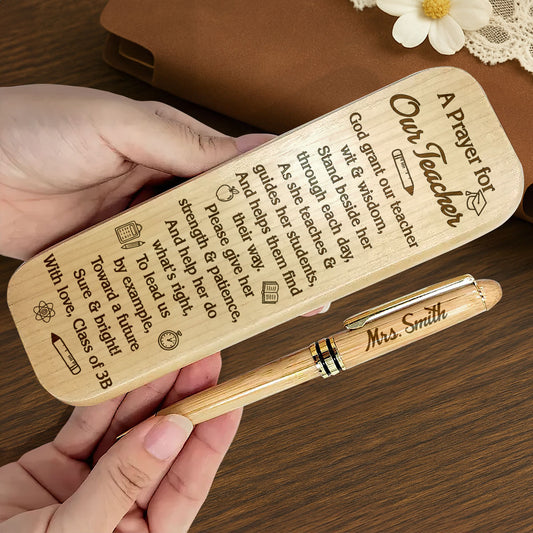 A Prayer for
Our Teacher
God grant our teacher
wit & wisdom,
Stand beside her
through each day,
As she teaches &
guides her students,
And helps them find
their way.
Please give her
strength & patience,
And help her do
what's right,
To lead us
by example,
Toward a future
Sure & bright!
With love, Class of 3B
Mrs. Smith